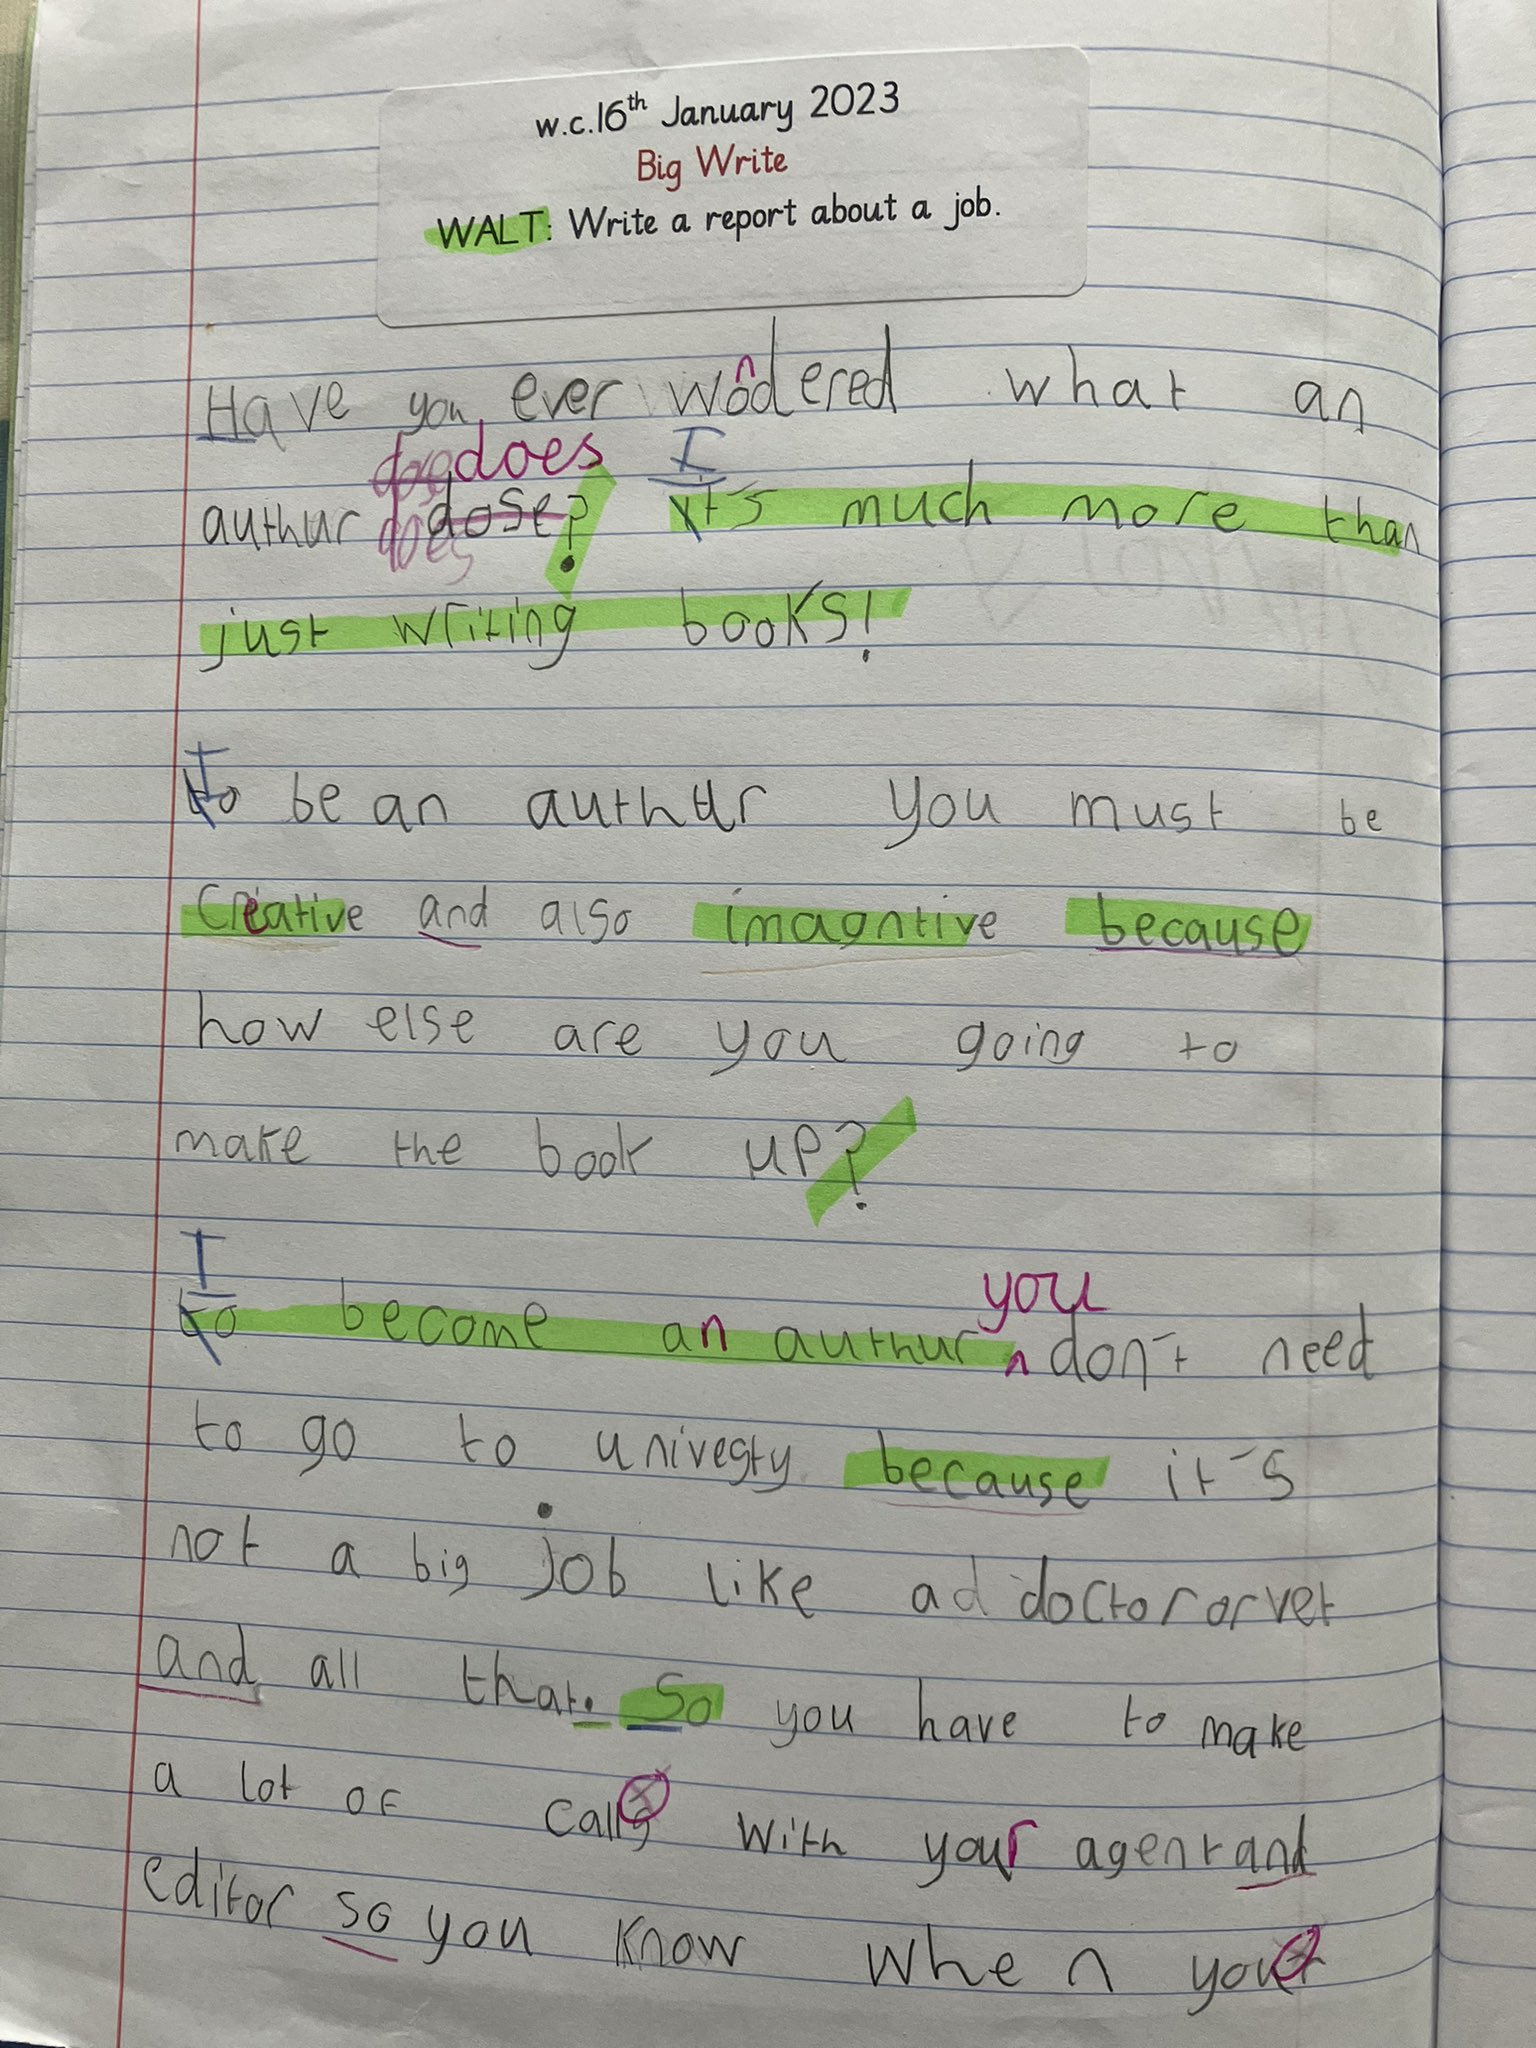 w.c.16th January 2023
Big Write
WALT: Write a report about a job.
Have you ever wondered what an
does I
authur dose? it's much more than
does
just writing books!
T
to be an authur you must be
Creative and also imagntive because
how else are you going to
make the book up?
T you
to become an authur ^ don't need
to go to univesty because it's
not a big job like a d doctor or vet
and all that. So you have to make
a lot of calls with your agent and
editor so you know when your